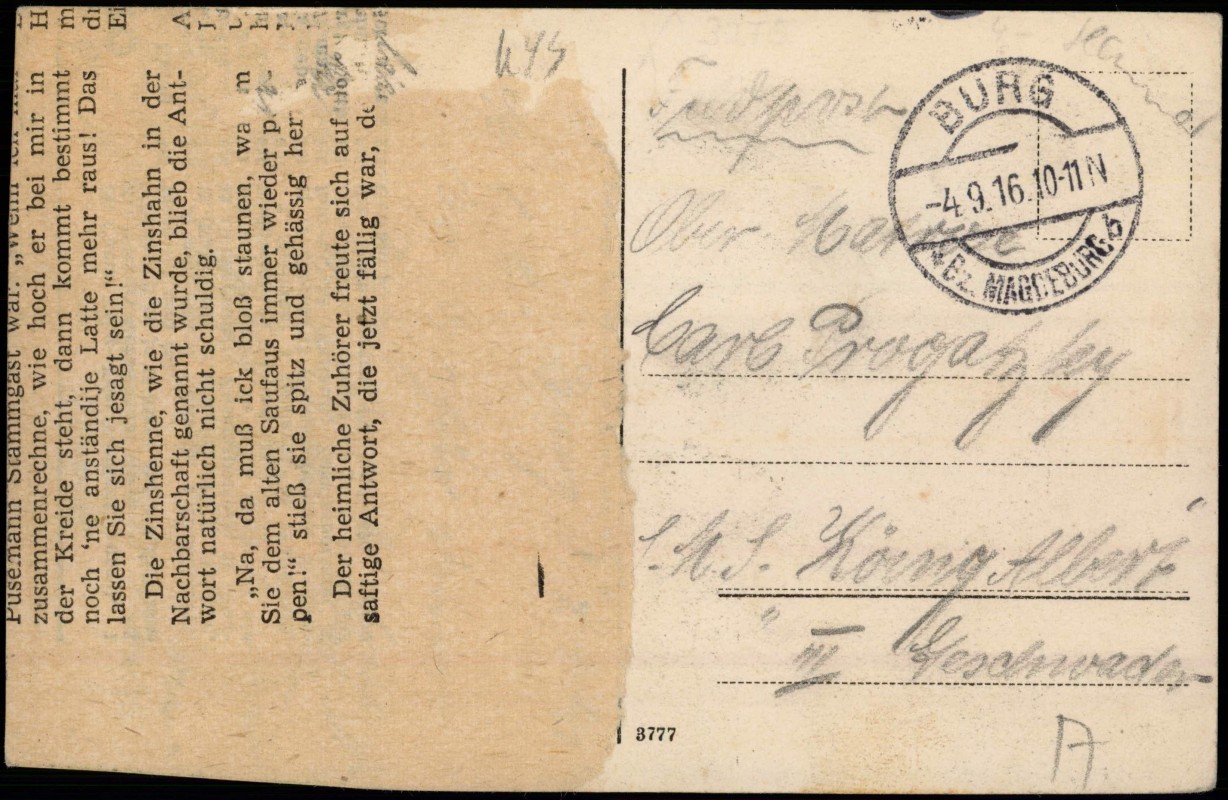 Pusemann Stammgast war. „Wenn ich mal
zusammenrechne, wie hoch er bei mir in
der Kreide steht, dann kommt bestimmt
noch 'ne anständije Latte mehr raus! Das
lassen Sie sich jesagt sein!“
Die Zinshenne, wie die Zinshahn in der
Nachbarschaft genannt wurde, blieb die Ant-
wort natürlich nicht schuldig.
„Na, da muß ick bloß staunen, wa m
Sie dem alten Saufaus immer wieder p -
pen!“ stieß sie spitz und gehässig her
Der heimliche Zuhörer freute sich auf
saftige Antwort, die jetzt fällig war, de
Feldpost
BURG
-4.9.16.10-11N
Bz. MAGDEBURG b
Ober Matrose
Carl Progatzky
S.M.S. König Albert
"
III Geschwader
3777
A